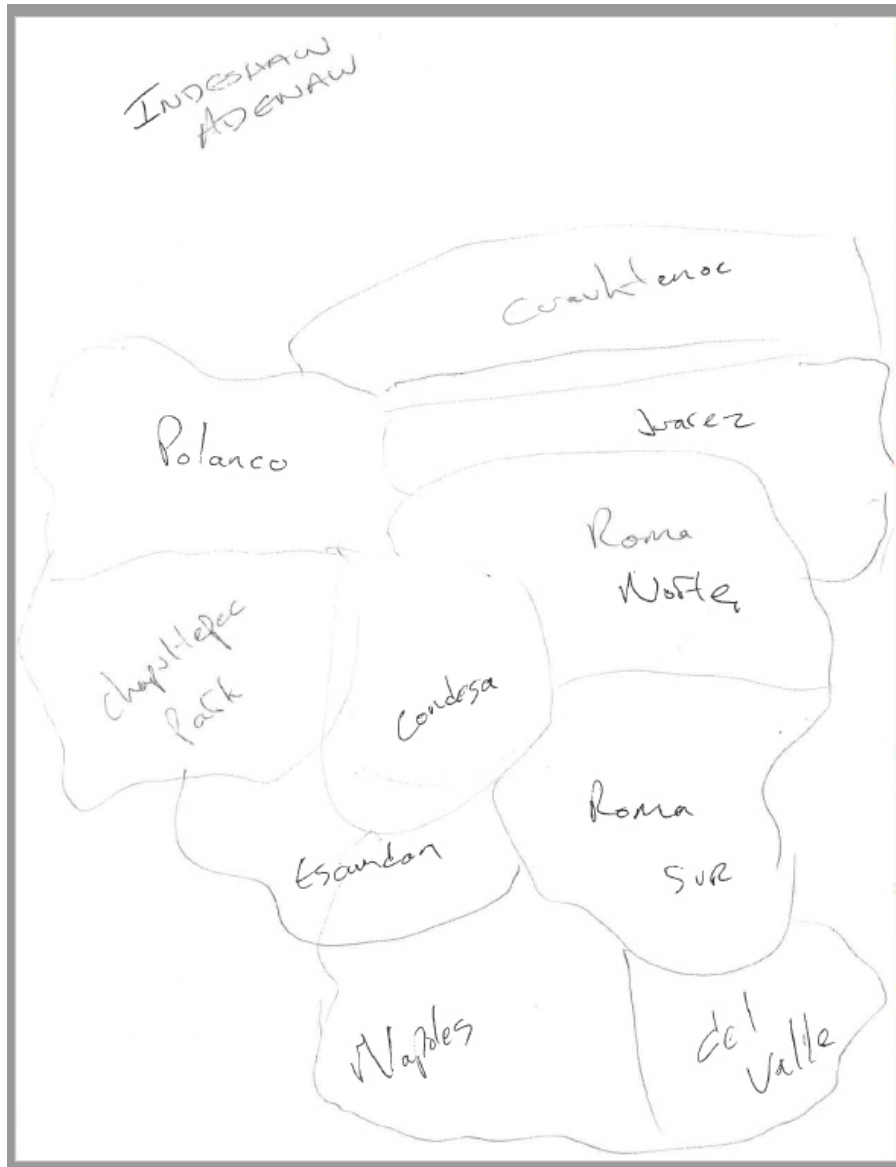 INDESHAW
ADENAW
Cuauhtemoc
Juarez
Polanco
Roma
Norte
Chapultepec
Park
Condesa
Roma
SUR
Escandon
Naples
del
Valle